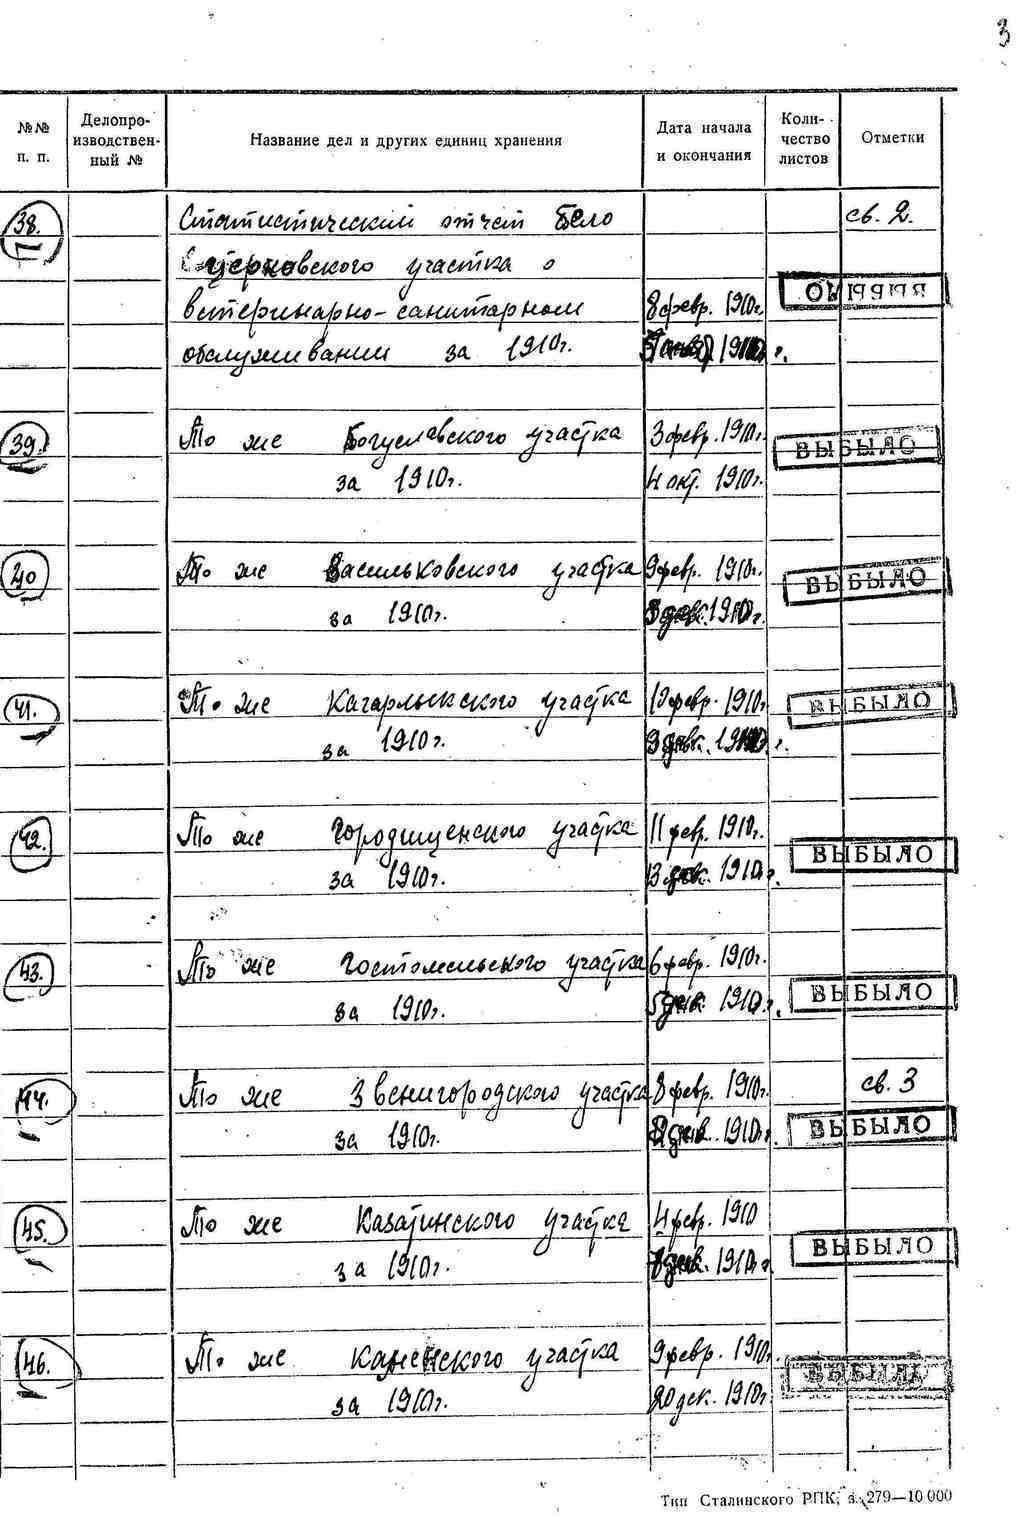 3
№№ п. п.
Делопроизводственный №
Название дел и других единиц хранения
Дата начала и окончания
Количество листов
Отметки
38. Статистический отчет Бело св. 2.
церковского участка о
ветеринарно-санитарном 8 февр. 1910г. ВЫБЫЛО
обслуживании за 1910г.
39. То же Богуславского участка 3 февр. 1910г. ВЫБЫЛО
за 1910г. 4 окт. 1910г.
40 То же Васильковского участка 9 февр. 1910г. ВЫБЫЛО
за 1910г. дек. 1910г.
41. То же Кагарлыкского участка февр. 1910г. ВЫБЫЛО
за 1910г. 9 дек.
42. То же Городищенского участка 11 февр. 1910г. ВЫБЫЛО
за 1910г. 13 дек. 1910г.
43. То же Гостомельского участка 6 февр. 1910г. ВЫБЫЛО
за 1910г. 5 1910г.
44. То же Звенигородского участка 8 февр. 1910г. св. 3
за 1910г. 1910г. ВЫБЫЛО
45. То же Казатинского участка 4 февр. 1910
за 1910г. 1910г. ВЫБЫЛО
46. То же Каменского участка 9 февр. 1910г. ВЫБЫЛО
за 1910г. 20 дек. 1910г
Тип Сталинского РПК, з. 279—10 000